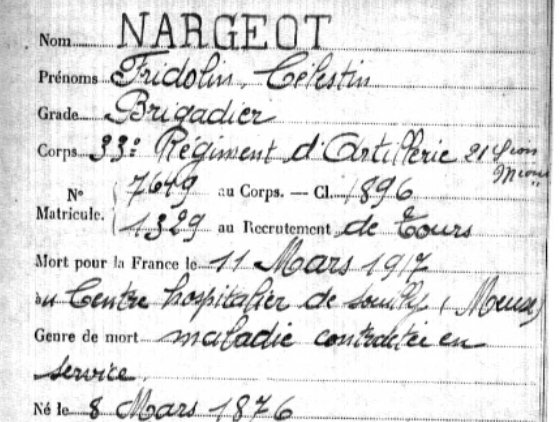 Nom NARGEOT
Prénoms Fridolin, Célestin
Grade Brigadier
Corps 33e Régiment d'Artillerie 21
N° 7649 au Corps. — Cl. 1896
Matricule. 1329 au Recrutement de Tours
Mort pour la France le 11 Mars 1917
au Centre hospitalier de Souilly (Meuse)
Genre de mort maladie contractée en
service.
Né le 8 Mars 1876